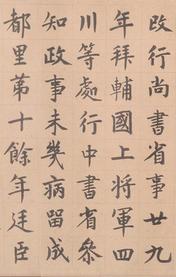 改行尚書省事廿九
年拜輔國上将軍四
川等處行中書省叅
知政事未幾病留成
都里苐十餘年廷臣